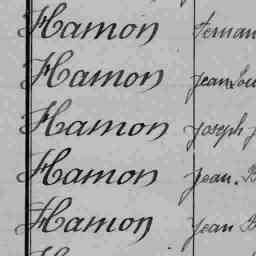 Hamon
Hamon Jean Lou
Hamon Joseph
Hamon Jean. B
Hamon Jean B